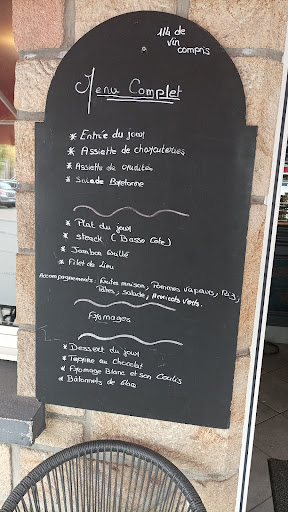 1/4 de
vin
compris
Menu Complet
* Entrée du jour
* Assiette de charcuteries
* Assiette de crudités
* Salade Bretonne
* Plat du jour
* Steack (Basse Côte)
* Jambon Grillé
* Filet de Lieu
Accompagnements: frites maison, Pommes vapeurs, Riz,
Pâtes, salade, Haricots Verts.
Fromages
* Dessert du jour
* Terrine au Chocolat
* Fromage Blanc et son Coulis
* Bâtonnets de glace